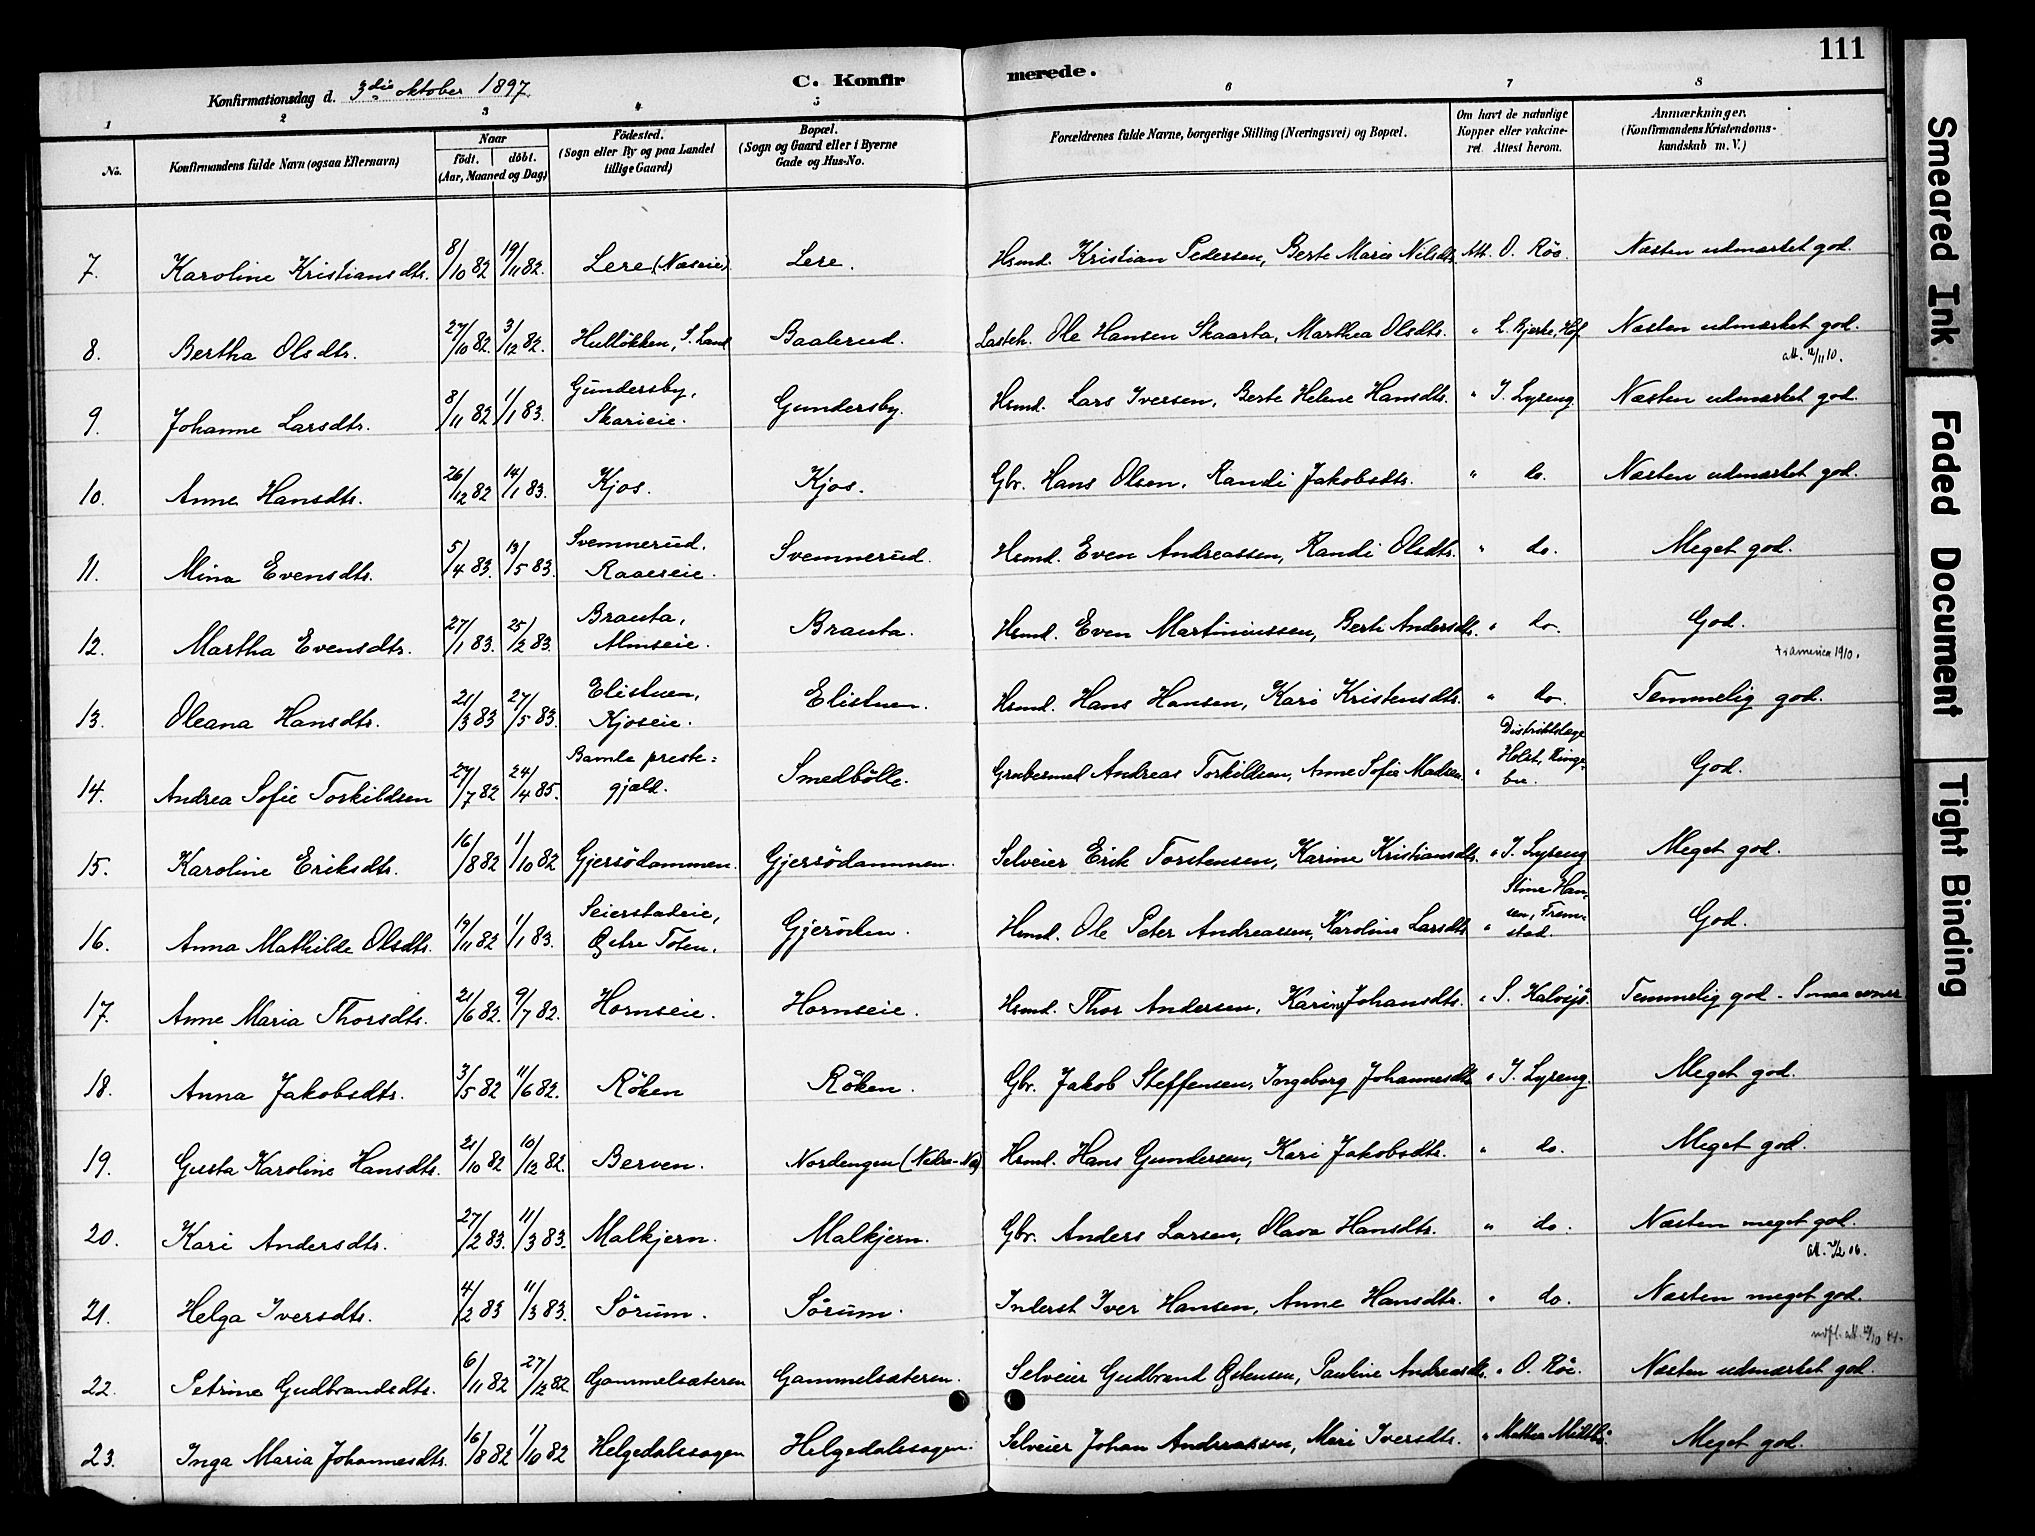 111
Konfirmationsdag d. 3die oktober 1897.
C. Konfirmerede.
1 2 3 4 5 6 7 8
No. Konfirmandens fulde Navn (ogsaa Efternavn) Naar födt. döbt. (Aar, Maaned og Dag) Födested. (Sogn eller By og paa Landet tillige Gaard) Bopæl. (Sogn og Gaard eller i Byerne Gade og Hus-No. Forældrenes fulde Navne, borgerlige Stilling (Næringsvei) og Bopæl. Om havt de naturlige Kopper eller vakcineret. Attest herom. Anmærkninger. (Konfirmandens Kristendomskundskab m. V.)
7. Karoline Kristiansdtr. 8/10 82 19/11 82. Lere (Næseie) Lere. Hsmd. Kristian Pedersen, Berte Marie Nilsdtr. Att. O. Röe. Næsten udmærket god.
8. Bertha Olsdtr. 27/10 82. 3/12 82. Hullökken, S. Land Baalerud. Ole Hansen Skaarta, Marthea Olsdtr. " L. Bjerke, Hof. Næsten udmærket god.
9. Johanne Larsdtr. 8/11 82 1/1 83. Gundersby, Skarieie. Gundersby. Hsmd. Lars Iversen, Berte Helene Hansdtr. " I. Lyseng Næsten udmærket god.
10. Anne Hansdtr. 26/12 82 14/1 83. Kjos. Kjos. Gbr. Hans Olsen, Randi Jakobsdtr. " do. Næsten udmærket god.
11. Mina Evensdtr. 5/4 83. 13/5 83. Svemmerud, Raaeseie. Svemmerud. Hsmd. Even Andreassen, Randi Olsdtr. " do. Meget god.
12. Martha Evensdtr. 27/1 83. 25/2 83. Brauta, Almseie. Brauta. Hsmd. Even Martiniussen, Berte Andersdtr. " do. God.
t. i america 1910.
13. Oleana Hansdtr. 21/3 83 27/5 83. Elistuen, Kjoseie. Elistuen. Hsmd. Hans Hansen, Kari Kristensdtr. " do. Temmelig god.
14. Andrea Sofie Torkildsen 27/7 82 24/4 85. Bamle prestegjæld. Smedbölle. Grubermed Andreas Torkildsen, Anne Sofie Madsen. " Distriktslæge Holst, Ringebu. God.
15. Karoline Eriksdtr. 16/8 82 1/10 82 Gjersödammen. Gjersödammen. Selveier Erik Torstensen, Karine Kristiansdtr. " I. Lyseng Meget god.
16. Anna Mathilde Olsdtr. 19/11 82 1/1 83. Seierstadeie, Østre Toten. Gjeröden. Hsmd. Ole Peter Andreassen, Karoline Larsdtr. " Stine Hansen, Fremstad. God.
17. Anne Maria Thorsdtr. 21/6 82. 9/7 82. Hornseie. Hornseie. Hsmd. Thor Andersen, Karin Johansdtr. " S. Halvejs. Temmelig god - Smaa evner
18. Anna Jakobsdtr. 3/5 82 11/6 82. Röken Röken. Gbr. Jakob Steffensen, Ingeborg Johannesdtr. " I. Lyseng. Meget god.
19. Gusta Karoline Hansdtr. 21/10 82 10/12 82. Berven. Nordengen Hsmd. Hans Gundersen, Kari Jakobsdtr. " do. Meget god.
20. Kari Andersdtr. 27/2 83. 11/3 83. Malkjern. Malkjern. Gbr. Anders Larsen, Olava Hansdtr. " do. Næsten meget god.
21. Helga Iversdtr. 4/2 83 11/3 83. Sörum. Sörum. Inderst Iver Hansen, Anne Hansdtr. " do. Næsten meget god.
22. Petrine Gudbrandsdtr. 6/11 82 27/12 82. Gammelsæteren Gammelsæteren. Selveier Gudbrand Østensen, Pauline Andreasdtr. " O. Röe. Næsten udmærket god.
23. Inga Maria Johannesdtr. 16/8 82 1/10 82 Helgedalssagen Helgedalssagen. Selveier Johan Andreassen, Mari Iversdtr. " Mathea Meget god.
Smeared Ink
Faded Document
Tight Binding